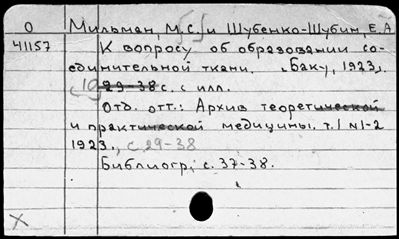 О Мильман, М.С. и Шубенко-Шубин, Е.А
41157 К вопросу об образовании со-
единительной ткани. [Баку, 1923].
[10] 29-38 с. с илл.
Отд. отт.: Архив теоретической
и практической медицины. т.1 №1-2
1923., с 29-38
Библиогр; с. 37-38.
X